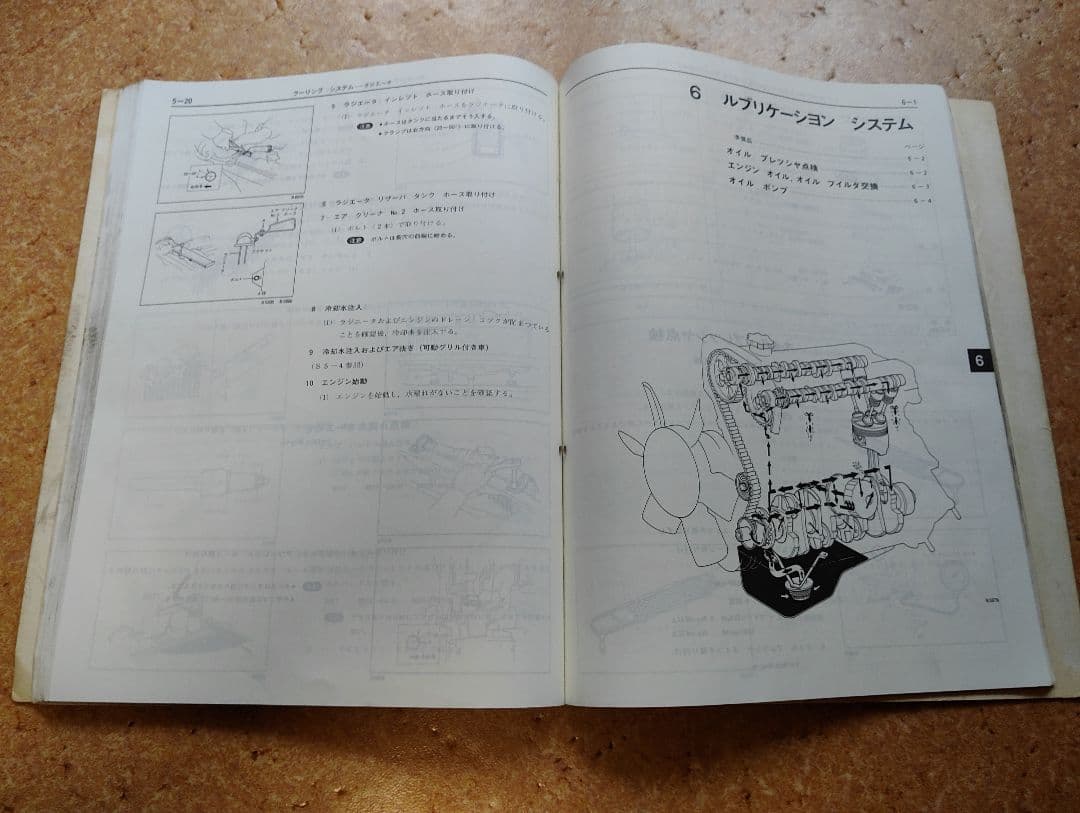 5-20
クーリング システム－ラジエータ
5 ラジエータ インレット ホース取り付け
(1) ラジエータ インレット ホースをラジエータに取り付ける。
注意 ●ホースはタンクに当たるまでそう入する。
●クランプは右方向
に取り付ける。
6 ラジエータ リザーバ タンク ホース取り付け
7 エア クリーナ No.2 ホース取り付け
(1) ボルト(2本)で取り付ける。
注意 ボルトは長穴の前端に締める。
8 冷却水注入
(1) ラジエータおよびエンジンのドレーン コックが閉まっている
ことを確認後、冷却水を注入する。
9 冷却水注入およびエア抜き(可動グリル付き車)
(S5-4参照)
10 エンジン始動
(1) エンジンを始動し、水漏れがないことを確認する。
6-1
6 ルブリケーション システム
ページ
準備品
6-2
オイル プレッシャ点検
6-2
エンジン オイル、オイル フイルタ交換
6-3
オイル ポンプ
6-4
6